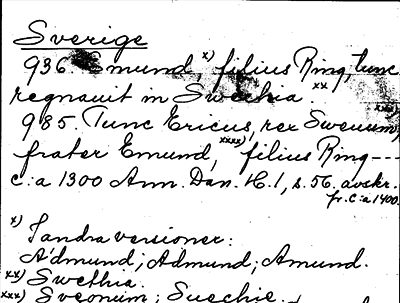 Sverige
936. Emund, x) filius Ring, tunc
regnauit in Swechia. xx)
985. Tunc Ericus, rex Sweuum, xxx)
frater Emund, xxxx) filius Ring ---
c:a 1300 Ann. Dan. H.1, s. 56. avskr.
fr. c:a 1400.
x) I andra versioner:
Ådmund; Admund; Amund.
xx) Swethia.
xxx) Sveonum; Suechie.